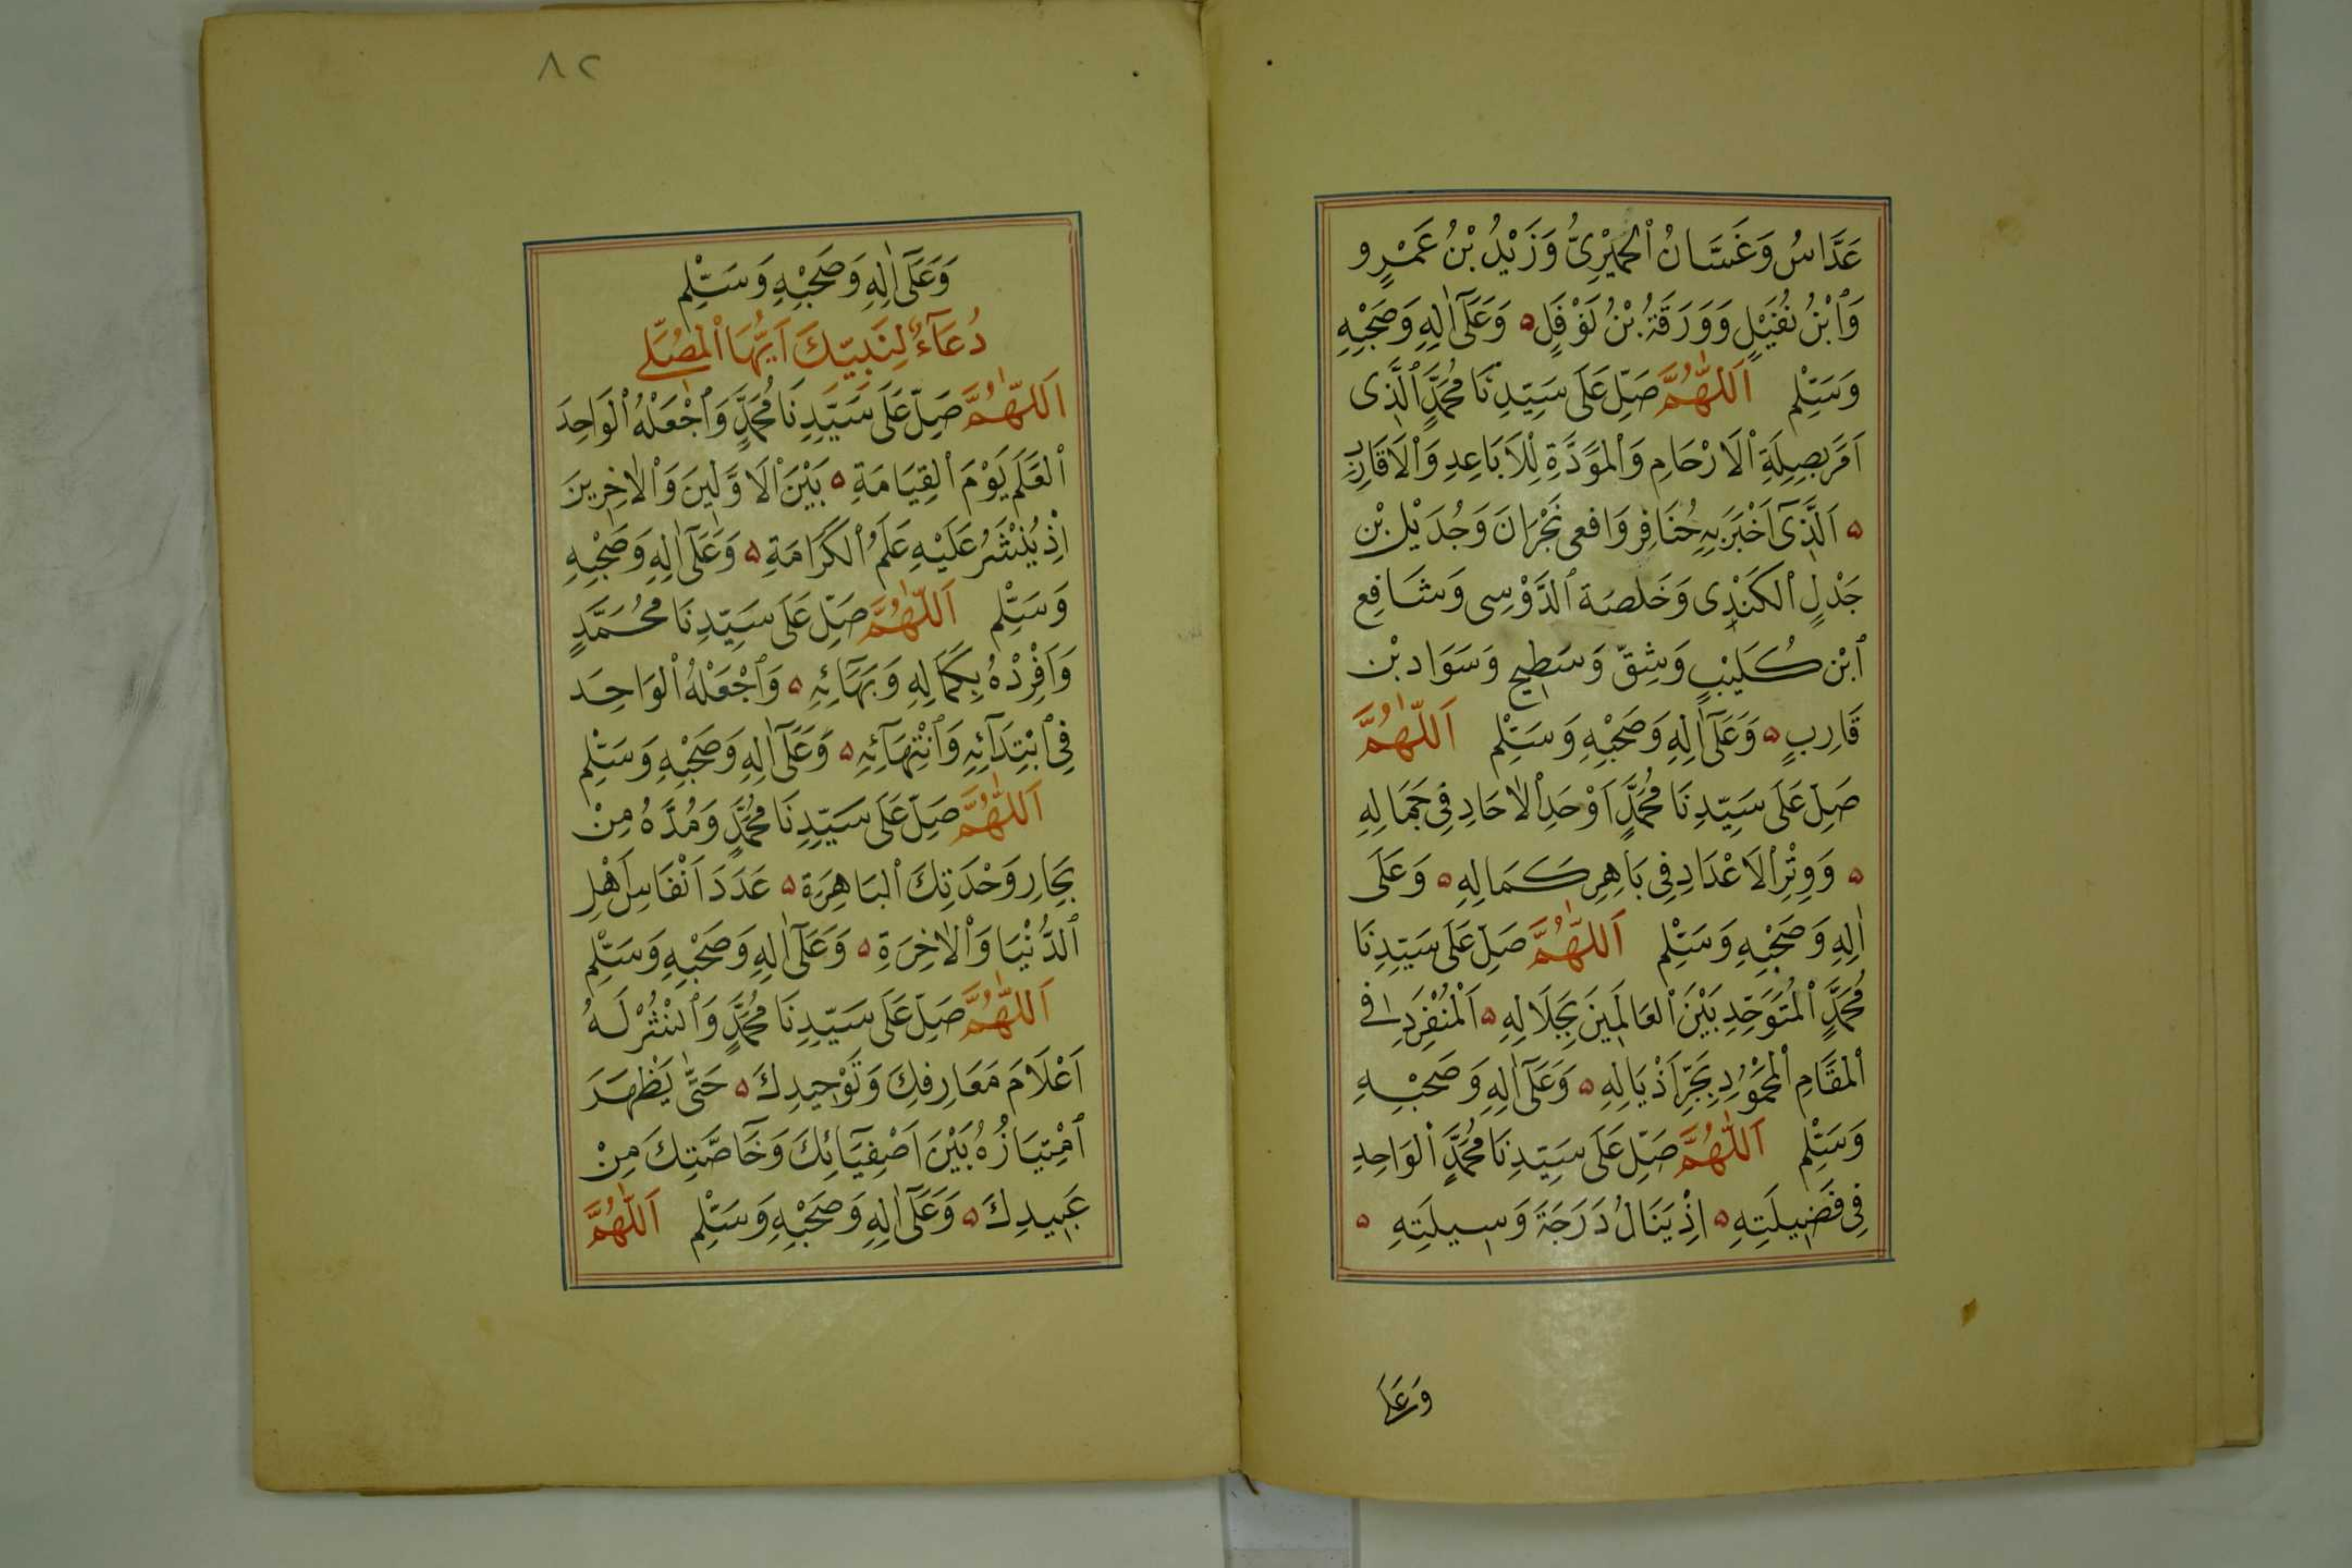 عَدَّاسُ وَغَسَّانُ ٱلْحِمْيَرِىُّ وَزَيْدُ بْنُ عَمْرٍو
وَٱبْنُ نُفَيْلٍ وَوَرَقَةُ بْنُ نَوْفَلٍ ۵ وَعَلَىٰٓ اٰلِهِ وَصَحْبِهِ
وَسَلِّمْ اَللّٰهُمَّ صَلِّ عَلَى سَيِّدِنَا مُحَمَّدٍ ٱلَّذِى
اَمَرَ بِصِلَةِ ٱلْاَرْحَامِ وَٱلْمَوَدَّةِ لِلْاَبَاعِدِ وَٱلْاَقَارِبِ
۵ اَلَّذِىٓ اَخْبَرَ بِهِ خُنَافِر وَافعى نَجْرَانَ وَجُدَيْل بْن
جَدْلٍ ٱلْكَنَدِى وَخَلصَة ٱلدَّوْسِى وَشَافِع
ٱبْن كُلَيْبٍ وَشِقّ وَسَطِيح وَسَوَاد بْن
قَارِبٍ ۵ وَعَلَىٰٓ اٰلِهِ وَصَحْبِهِ وَسَلِّمْ اَللّٰهُمَّ
صَلِّ عَلَى سَيِّدِنَا مُحَمَّدٍ اَوْحَدِ ٱلْاٰحَادِ فِى جَمَالِهِ
۵ وَوِتْرِ ٱلْاَعْدَادِ فِى بَاهِرِ كَمَالِهِ ۵ وَعَلَى
اٰلِهِ وَصَحْبِهِ وَسَلِّمْ اَللّٰهُمَّ صَلِّ عَلَى سَيِّدِنَا
مُحَمَّدٍ ٱلْمُتَوَحِّدِ بَيْنَ ٱلْعَالَمِينَ بِجَلَالِهِ ۵ اَلْمُنْفَرِدِ فِى
ٱلْمَقَامِ ٱلْمَحْمُودِ بِجَرِّ اَذْيَالِهِ ۵ وَعَلَىٰٓ اٰلِهِ وَصَحْبِهِ
وَسَلِّمْ اَللّٰهُمَّ صَلِّ عَلَى سَيِّدِنَا مُحَمَّدٍ ٱلْوَاحِدِ
فِى فَضِيلَتِهِ ۵ اِذْ يَنَالُ دَرَجَةَ وَسِيلَتِهِ ۵
وَعَلَى
٨٢
وَعَلَىٰٓ اٰلِهِ وَصَحْبِهِ وَسَلِّمْ
دُعَآءٌ لِنَبِيِّكَ اَيُّهَا ٱلْمُصَلِّى
اَللّٰهُمَّ صَلِّ عَلَى سَيِّدِنَا مُحَمَّدٍ وَٱجْعَلْهُ ٱلْوَاحِدَ
ٱلْعَلَمَ يَوْمَ ٱلْقِيَامَةِ ۵ بَيْنَ ٱلْاَوَّلِينَ وَٱلْاٰخِرِينَ
اِذْ يُنْشَرُ عَلَيْهِ عَلَمُ ٱلْكَرَامَةِ ۵ وَعَلَىٰٓ اٰلِهِ وَصَحْبِهِ
وَسَلِّمْ اَللّٰهُمَّ صَلِّ عَلَى سَيِّدِنَا مُحَمَّدٍ
وَاَفْرِدْهُ بِكَمَالِهِ وَبَهَآئِهِ ۵ وَٱجْعَلْهُ ٱلْوَاحِدَ
فِى ٱبْتِدَآئِهِ وَٱنْتِهَآئِهِ ۵ وَعَلَىٰٓ اٰلِهِ وَصَحْبِهِ وَسَلِّمْ
اَللّٰهُمَّ صَلِّ عَلَى سَيِّدِنَا مُحَمَّدٍ وَمُدَّهُ مِنْ
بِحَارِ وَحْدَتِكَ ٱلْبَاهِرَةِ ۵ عَدَدَ اَنْفَاسِ اَهْلِ
ٱلدُّنْيَا وَٱلْاٰخِرَةِ ۵ وَعَلَىٰٓ اٰلِهِ وَصَحْبِهِ وَسَلِّمْ
اَللّٰهُمَّ صَلِّ عَلَى سَيِّدِنَا مُحَمَّدٍ وَٱنْشُرْ لَهُ
اَعْلَامَ مَعَارِفِكَ وَتَوْحِيدِكَ ۵ حَتّٰى يَظْهَرَ
ٱمْتِيَازُهُ بَيْنَ اَصْفِيَآئِكَ وَخَآصَّتِكَ مِنْ
عَبِيدِكَ ۵ وَعَلَىٰٓ اٰلِهِ وَصَحْبِهِ وَسَلِّمْ اَللّٰهُمَّ